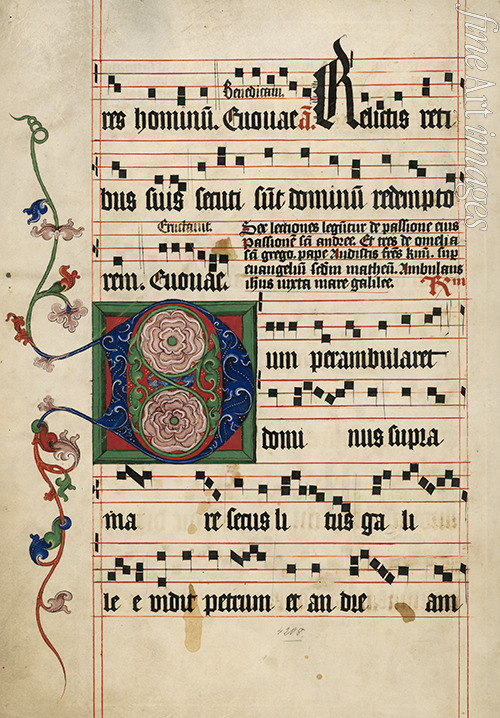 Benedicam.
res hominū. Euouae. ā. Relictis reti
bus suis secuti sūt dominū redempto
Eructauit.
rem. Euouae.
Hee lectiones legūtur de passione eius
Passione sc̄i andree. Et tres de omelia
sc̄i grego. pape Audistis frēs kmi. sup
euangeliū scdm matheū. Ambulans
ihūs iuxta mare galilee. Rm
Dum perambularet
domi nus supra
ma re secus li tus ga li
le e vidit petrum et an dre am
4208.
fine Art images